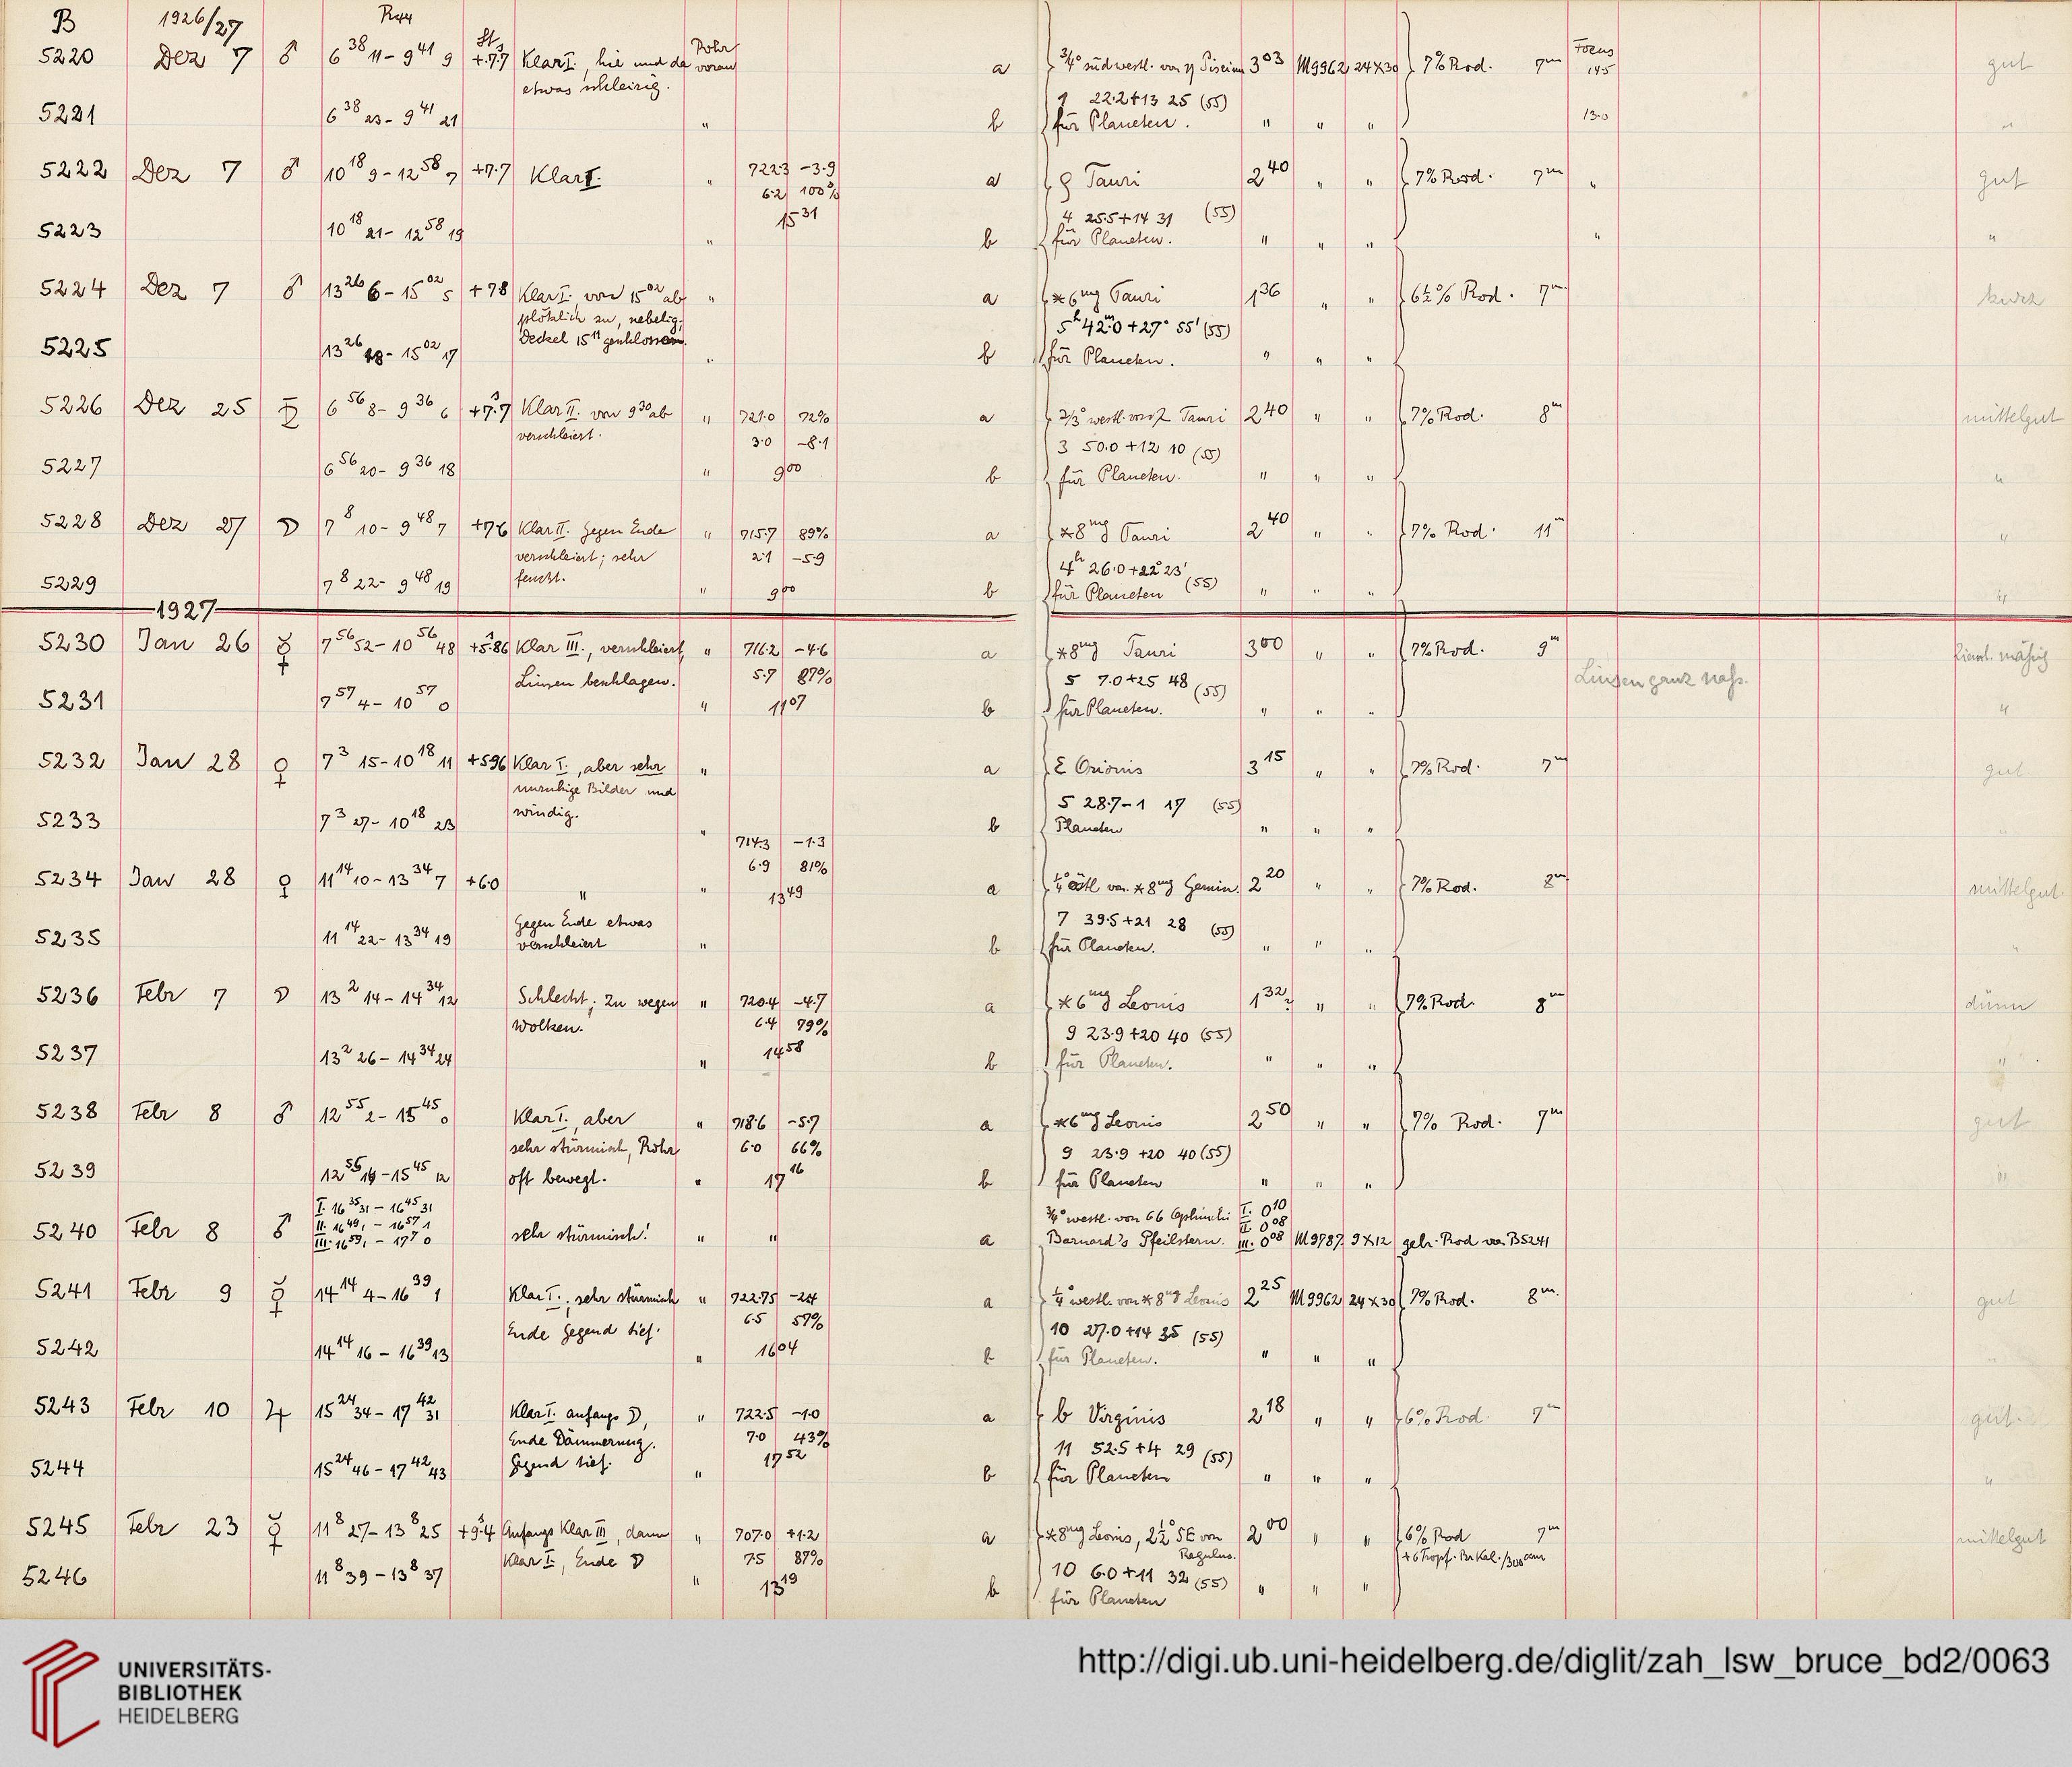 B 1926/27 R44
5220 Dez 7 ♂ 6 38 11 – 9 41 9 +7.7 Klar I., hie und da Rohr voran a ¾° südwestl. von η Piscium 3 03 M9962 24×30 7% Rod. 7m Focus 14.5 gut
etwas schleirig. 1 22.2 +13 25 (55)
5221 6 38 23 – 9 41 21 " b für Planeten. " " " 13.0 "
5222 Dez 7 ♂ 10 18 9 – 12 58 7 +7.7 Klar I. " 722.3 –3.9 a ρ Tauri 2 40 " " 7% Rod. 7m " gut
6.2 100%
15 31 4 25.5 +14 31 (55)
5223 10 18 21 – 12 58 19 " b für Planeten. " " " " "
5224 Dez 7 ♂ 13 26 6 – 15 02 5 +7.8 Klar I., von 15 02 ab " a *6mg Tauri 1 36 " " 6½% Rod. 7m kurz
plötzlich zu, nebelig; 5h 42m.0 +27° 55' (55)
Deckel 15 11 geschlossen.
5225 13 26 18 – 15 02 17 " b für Planeten. " " "
5226 Dez 25 ♄ 6 56 8 – 9 36 6 +7.7 Klar II. von 9 30 ab " 721.0 72% a ⅔° westl. von λ Tauri 2 40 " " 7% Rod. 8m mittelgut
verschleiert. 3.0 –8.1 3 50.0 +12 10 (55)
5227 6 56 20 – 9 36 18 " 9 00 b für Planeten. " " " "
5228 Dez 27 ☽ 7 8 10 – 9 48 7 +7.6 Klar II. Gegen Ende " 715.7 89% a *8mg Tauri 2 40 " " 7% Rod. 11m "
verschleiert; sehr 2.1 –5.9 4h 26.0 +22° 23' (55)
feucht.
5229 7 8 22 – 9 48 19 " 9 00 b für Planeten " " " "
1927
5230 Jan 26 ☿ 7 56 52 – 10 56 48 +5.86 Klar III., verschleiert, " 716.2 –4.6 a *8mg Tauri 3 00 " " 7% Rod. 9m Ziemt. mäßig
Linsen beschlagen. 5.7 87% 5 7.0 +25 48 (55) Linsen ganz naß.
5231 7 57 4 – 10 57 0 " 11 07 b für Planeten. " " " "
5232 Jan 28 ♀ 7 3 15 – 10 18 11 +5.96 Klar I., aber sehr " a ε Orionis 3 15 " " 7% Rod. 7m gut
unruhige Bilder und 5 28.7 –1 17 (55)
windig.
5233 7 3 27 – 10 18 23 " b Planeten " " "
714.3 –1.3
6.9 81%
5234 Jan 28 ♀ 11 14 10 – 13 34 7 +6.0 " " 13 49 a ¼° östl von *8mg Gemin. 2 20 " " 7% Rod. 8m mittelgut
Gegen Ende etwas 7 39.5 +21 28 (55)
5235 11 14 22 – 13 34 19 verschleiert " b für Planeten. " " " "
5236 Febr 7 ☽ 13 2 14 – 14 34 12 Schlecht; zu wegen " 720.4 –4.7 a *6mg Leonis 1 32? " " 7% Rod. 8m dünn
Wolken. 6.4 79% 9 23.9 +20 40 (55)
5237 13 2 26 – 14 34 24 " 14 58 b für Planeten. " " " "
5238 Febr 8 ♂ 12 55 2 – 15 45 0 Klar I., aber " 718.6 –5.7 a *6mg Leonis 2 50 " " 7% Rod. 7m gut
sehr stürmisch, Rohr 6.0 66% 9 23.9 +20 40 (55)
5239 12 55 14 – 15 45 12 oft bewegt. " 17 16 b für Planeten " " " "
I. 16 35 31 – 16 45 31 ¾° westl. von 66 Ophiuchi I. 0 10
II. 16 49 1 – 16 57 1 II. 0 08
5240 Febr 8 ♂ III. 16 59 1 – 17 7 0 sehr stürmisch! " " a Barnard's Pfeilstern. III. 0 08 M9787 9×12 gebr. Rod von B5241
5241 Febr 9 ☿ 14 14 4 – 16 39 1 Klar I., sehr stürmisch " 722.75 –2.4 a ¼° westl. von *8mg Leonis 2 25 M9962 24×30 7% Rod. 8m. gut
Ende Gegend tief. 6.5 57% 10 27.0 +14 35 (55)
5242 14 14 16 – 16 39 13 " 16 04 b für Planeten. " " " "
5243 Febr 10 ♃ 15 24 34 – 17 42 31 Klar I. anfangs ☽, " 722.5 –1.0 a b Virginis 2 18 " " 6% Rod. 7m gut.
Ende Dämmerung. 7.0 43% 11 52.5 +4 29 (55)
5244 15 24 46 – 17 42 43 Gegend tief. " 17 52 b für Planeten " " " "
5245 Febr 23 ☿ 11 8 27 – 13 8 25 +9.4 Anfangs Klar III, dann " 707.0 +1.2 a *8mg Leonis, 2½° SE von 2 00 " " 6% Rod 7m mittelgut
Klar I., Ende ☽ 7.5 87% Regulus. +6 Tropf. Br Kal./300 ccm
5246 11 8 39 – 13 8 37 " 13 19 b 10 6.0 +11 32 (55) " " "
für Planeten
UNIVERSITÄTS-
BIBLIOTHEK
HEIDELBERG
http://digi.ub.uni-heidelberg.de/diglit/zah_lsw_bruce_bd2/0063